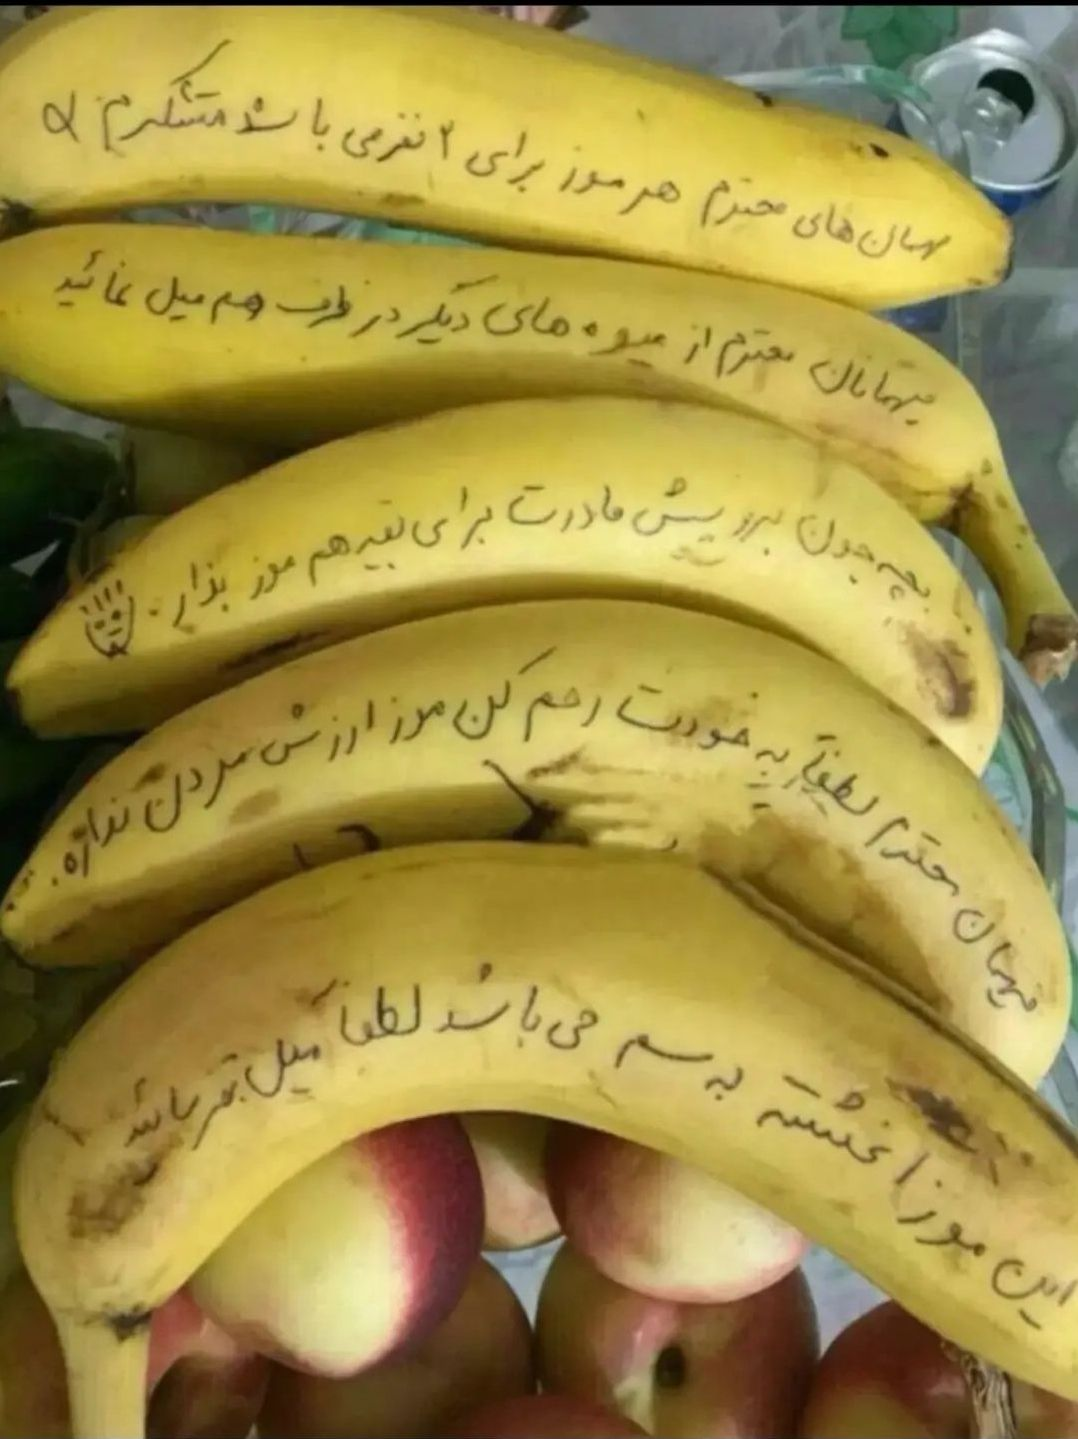 مهمان های محترم هر موز برای ۲ نفر می باشد متشکرم
میهمانان محترم از میوه های دیگر در ظرف هم میل نمائید
بچه جون برو پیش مادرت برای بقیه هم موز بذار.
میهمان محترم لطفاً به خودت رحم کن موز ارزش مردن نداره.
این موز آغشته به سم می باشد لطفاً میل بفرمائید